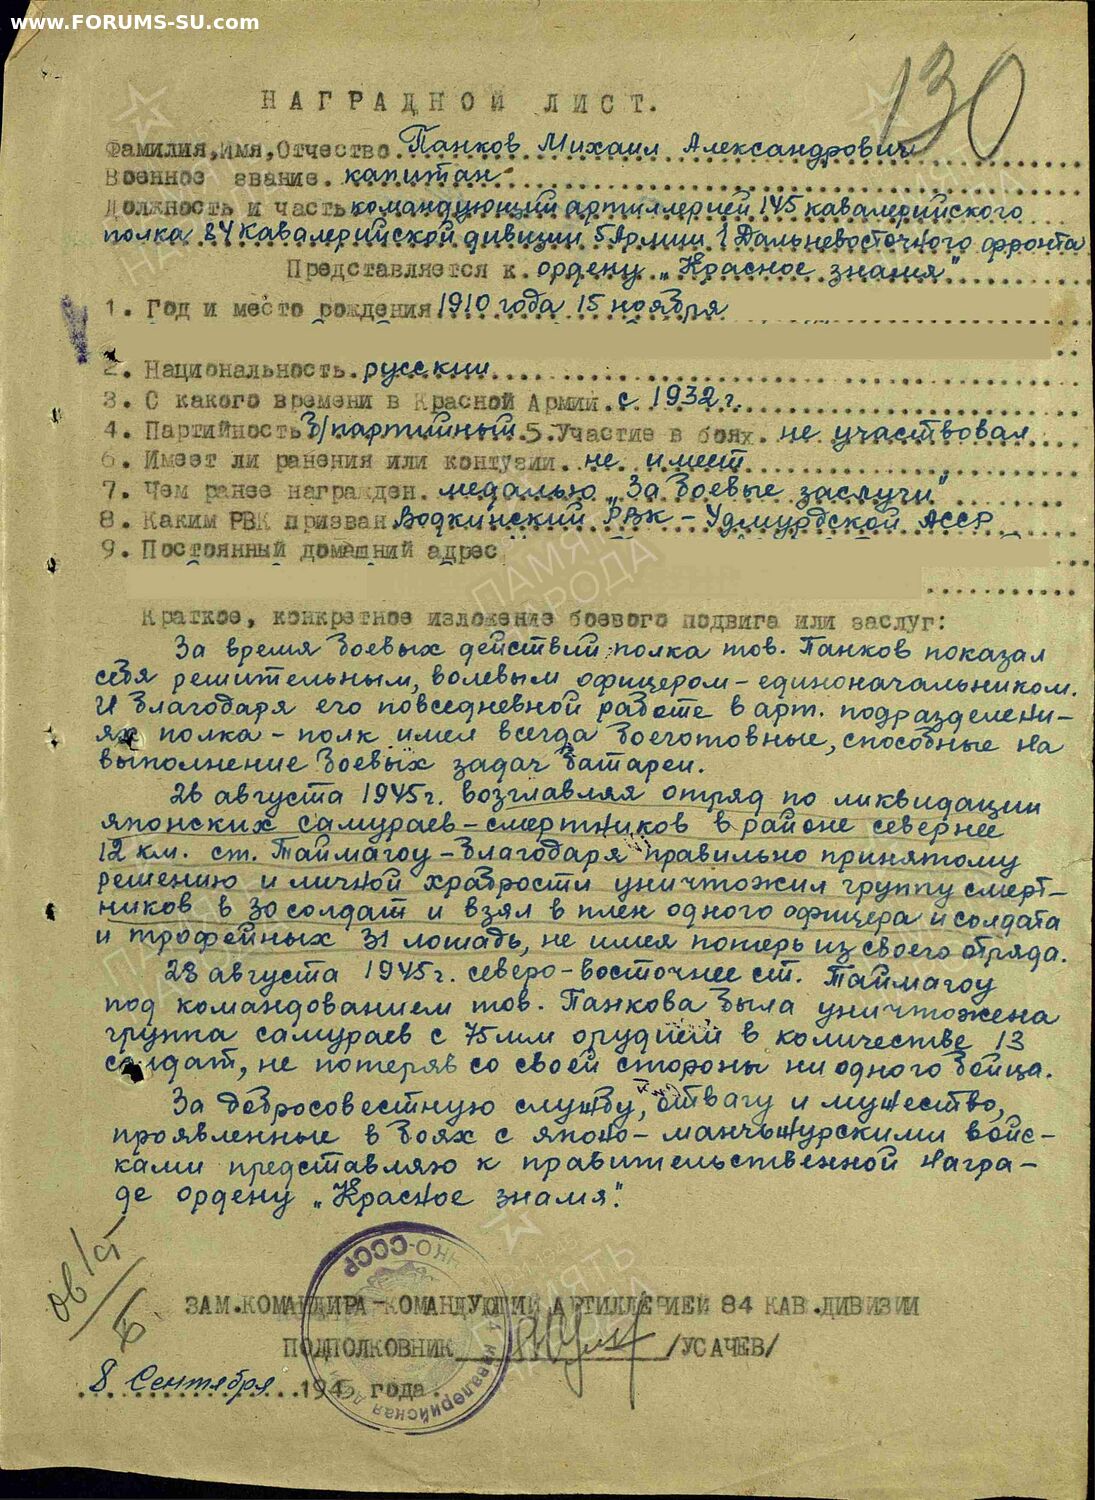 www.FORUMS-SU.com
130
НАГРАДНОЙ ЛИСТ.
Фамилия, Имя, Отчество Панков Михаил Александрович
Военное звание. капитан
Должность и часть командующий артиллерией 145 кавалерийского
полка 84 кавалерийской дивизии 5 Армии 1 Дальневосточного фронта
Представляется к. ордену „Красное знамя"
1. Год и место рождения 1910 года 15 ноября
2. Национальность. русский
3. С какого времени в Красной Армии. с 1932 г.
4. Партийность Б/партийный. 5. Участие в боях. не участвовал
6. Имеет ли ранения или контузии. не имеет
7. Чем ранее награжден. медалью „За боевые заслуги"
8. Каким РВК призван Водкинский РВК – Удмурдской АССР
9. Постоянный домашний адрес
Краткое, конкретное изложение боевого подвига или заслуг:
За время боевых действий полка тов. Панков показал
себя решительным, волевым офицером – единоначальником.
И благодаря его повседневной работе в арт. подразделени-
ях полка – полк имел всегда боеготовные, способные на
выполнение боевых задач батареи.
26 августа 1945 г. возглавляя отряд по ликвидации
японских самураев – смертников в районе севернее
12 км. ст. Таймагоу – благодаря правильно принятому
решению и личной храбрости уничтожил группу смерт-
ников в 30 солдат и взял в плен одного офицера и солдата
и трофейных 31 лошадь, не имея потерь из своего отряда.
28 августа 1945 г. северо-восточнее ст. Таймагоу
под командованием тов. Панкова была уничтожена
группа самураев с 75 мм орудием в количестве 13
солдат, не потеряв со своей стороны ни одного бойца.
За добросовестную службу, отвагу и мужество,
проявленные в боях с японо-манчьжурскими войс-
ками представляю к правительственной награ-
де ордену „Красное знамя".
ЗАМ.КОМАНДИРА-КОМАНДУЮЩИЙ АРТИЛЛЕРИЕЙ 84 КАВ.ДИВИЗИИ
ПОДПОЛКОВНИК /УСАЧЕВ/
8 Сентября 1945 года.
НКО-СССР
кавалерийская
ПАМЯТЬ НАРОДА